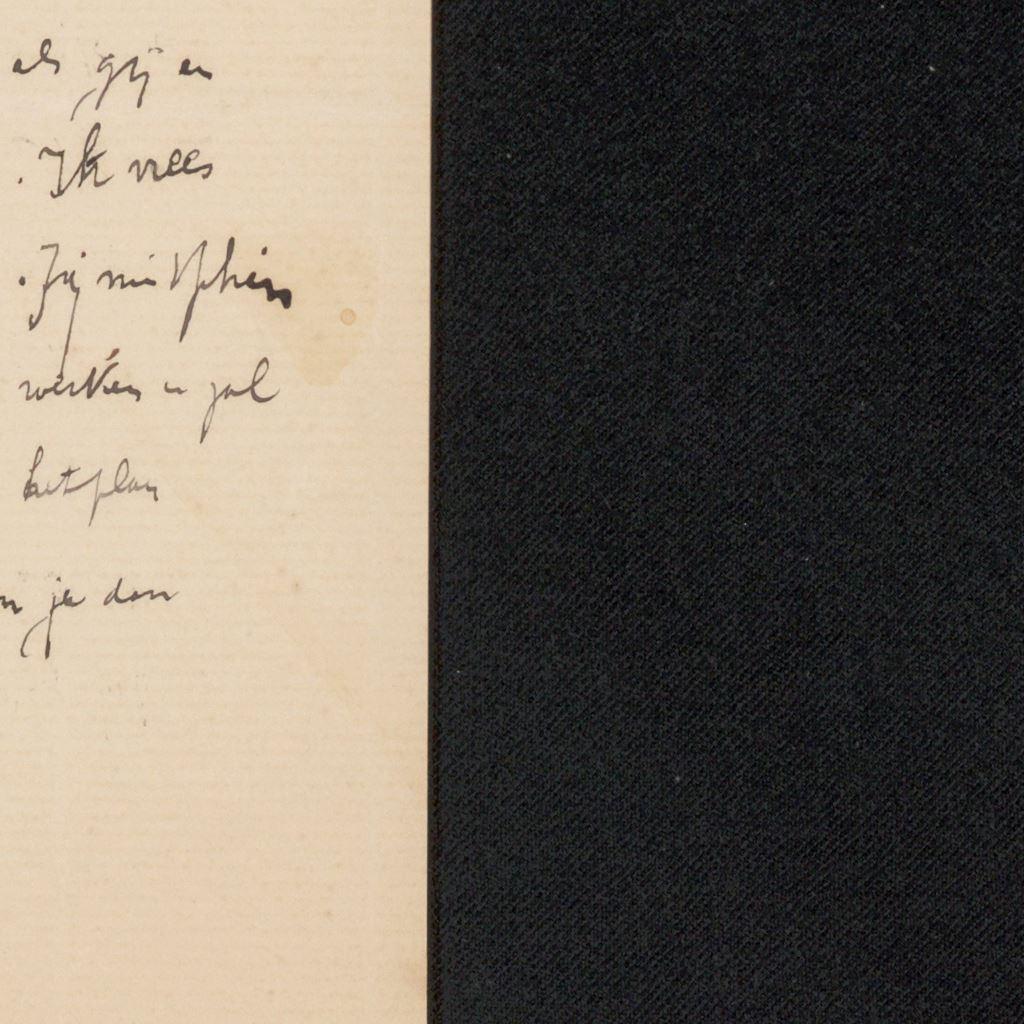 als gij en
. Ik vrees
. Zij
werken u zal
het plan
je dan